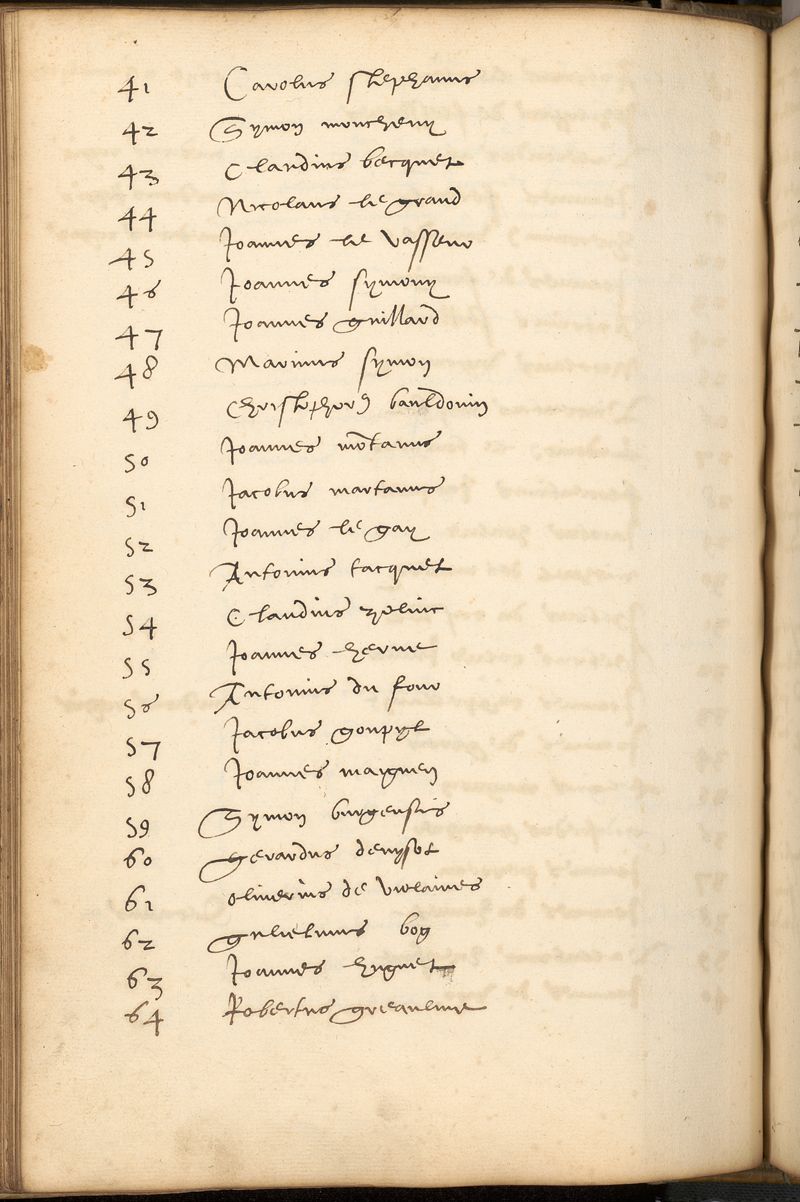 41 Carolus stephanus
42 Symon moncheny
43 Claudius becquet
44 Nicolaus le grand
45 Joannes le vasseur
46 Joannes symony
47 Joannes guillard
48 Marinus symon
49 Christopherꝰ bauldouin
50 Joannes mōtanus
51 Jacobus martanus
52 Joannes le gay
53 Antonius tacquet
54 Claudius
55 Joannes herue
56 Antonius du four
57 Jacobus goupyl
58 Joannes maignen
59 Symon burgensis
60 gerardus denysot
61 oliuerius de violaines
62 gulielmus bog
63 Joannes huguet
64 Robertus greaulme